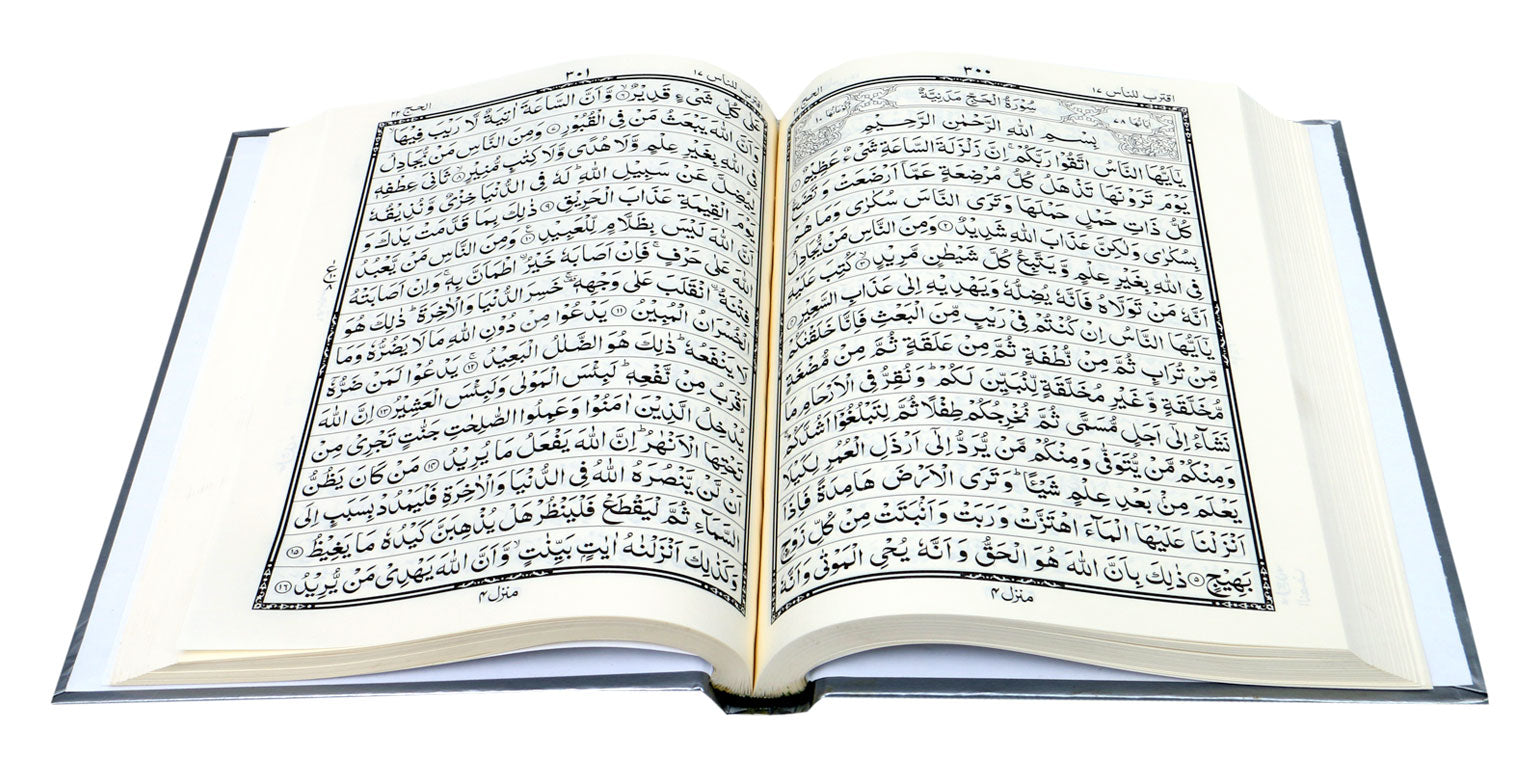 اقترب للناس ١٧
٣٠٠
الحج ٢٢
اٰيَاتُهَا ٧٨
سُوْرَةُ الْحَجِّ مَدَنِيَّةٌ
رُكُوْعَاتُهَا ١٠
بِسْمِ اللّٰهِ الرَّحْمٰنِ الرَّحِيْمِ
يٰۤاَيُّهَا النَّاسُ اتَّقُوْا رَبَّكُمْ ۚ اِنَّ زَلْزَلَةَ السَّاعَةِ شَىْءٌ عَظِيْمٌ ﴿١﴾
يَوْمَ تَرَوْنَهَا تَذْهَلُ كُلُّ مُرْضِعَةٍ عَمَّاۤ اَرْضَعَتْ وَ تَضَعُ
كُلُّ ذَاتِ حَمْلٍ حَمْلَهَا وَ تَرَى النَّاسَ سُكٰرٰى وَمَا هُمْ
بِسُكٰرٰى وَلٰكِنَّ عَذَابَ اللّٰهِ شَدِيْدٌ ﴿٢﴾ وَمِنَ النَّاسِ مَنْ يُّجَادِلُ
فِى اللّٰهِ بِغَيْرِ عِلْمٍ وَّ يَتَّبِعُ كُلَّ شَيْطٰنٍ مَّرِيْدٍ ﴿٣﴾ كُتِبَ عَلَيْهِ
اَنَّهٗ مَنْ تَوَلَّاهُ فَاَنَّهٗ يُضِلُّهٗ وَيَهْدِيْهِ اِلٰى عَذَابِ السَّعِيْرِ ﴿٤﴾
يٰۤاَيُّهَا النَّاسُ اِنْ كُنْتُمْ فِىْ رَيْبٍ مِّنَ الْبَعْثِ فَاِنَّا خَلَقْنٰكُمْ
مِّنْ تُرَابٍ ثُمَّ مِنْ نُّطْفَةٍ ثُمَّ مِنْ عَلَقَةٍ ثُمَّ مِنْ مُّضْغَةٍ
مُّخَلَّقَةٍ وَّ غَيْرِ مُخَلَّقَةٍ لِّنُبَيِّنَ لَكُمْ ؕ وَ نُقِرُّ فِى الْاَرْحَامِ مَا
نَشَآءُ اِلٰۤى اَجَلٍ مُّسَمًّى ثُمَّ نُخْرِجُكُمْ طِفْلًا ثُمَّ لِتَبْلُغُوْۤا اَشُدَّكُمْ ۚ
وَمِنْكُمْ مَّنْ يُّتَوَفّٰى وَمِنْكُمْ مَّنْ يُّرَدُّ اِلٰۤى اَرْذَلِ الْعُمُرِ لِكَيْلَا
يَعْلَمَ مِنْۢ بَعْدِ عِلْمٍ شَيْـًٔا ؕ وَ تَرَى الْاَرْضَ هَامِدَةً فَاِذَاۤ
اَنْزَلْنَا عَلَيْهَا الْمَآءَ اهْتَزَّتْ وَ رَبَتْ وَ اَنْۢبَتَتْ مِنْ كُلِّ زَوْجٍۭ
بَهِيْجٍ ﴿٥﴾ ذٰلِكَ بِاَنَّ اللّٰهَ هُوَ الْحَقُّ وَ اَنَّهٗ يُحْىِ الْمَوْتٰى وَ اَنَّهٗ
منزل ٤
اقترب للناس ١٧
٣٠١
الحج ٢٢
عَلٰى كُلِّ شَىْءٍ قَدِيْرٌ ﴿٦﴾ وَّ اَنَّ السَّاعَةَ اٰتِيَةٌ لَّا رَيْبَ فِيْهَا
وَ اَنَّ اللّٰهَ يَبْعَثُ مَنْ فِى الْقُبُوْرِ ﴿٧﴾ وَمِنَ النَّاسِ مَنْ يُّجَادِلُ
فِى اللّٰهِ بِغَيْرِ عِلْمٍ وَّلَا هُدًى وَّلَا كِتٰبٍ مُّنِيْرٍ ﴿٨﴾ ثَانِىَ عِطْفِهٖ
لِيُضِلَّ عَنْ سَبِيْلِ اللّٰهِ ؕ لَهٗ فِى الدُّنْيَا خِزْىٌ وَّ نُذِيْقُهٗ
يَوْمَ الْقِيٰمَةِ عَذَابَ الْحَرِيْقِ ﴿٩﴾ ذٰلِكَ بِمَا قَدَّمَتْ يَدٰكَ وَ
اَنَّ اللّٰهَ لَيْسَ بِظَلَّامٍ لِّلْعَبِيْدِ ﴿١٠﴾ وَمِنَ النَّاسِ مَنْ يَّعْبُدُ
اللّٰهَ عَلٰى حَرْفٍ ۚ فَاِنْ اَصَابَهٗ خَيْرُۨ اطْمَاَنَّ بِهٖ ۚ وَاِنْ اَصَابَتْهُ
فِتْنَةُۨ انْقَلَبَ عَلٰى وَجْهِهٖ ۚ خَسِرَ الدُّنْيَا وَالْاٰخِرَةَ ؕ ذٰلِكَ هُوَ
الْخُسْرَانُ الْمُبِيْنُ ﴿١١﴾ يَدْعُوْا مِنْ دُوْنِ اللّٰهِ مَا لَا يَضُرُّهٗ وَمَا
لَا يَنْفَعُهٗ ؕ ذٰلِكَ هُوَ الضَّلٰلُ الْبَعِيْدُ ﴿١٢﴾ يَدْعُوْا لَمَنْ ضَرُّهٗۤ
اَقْرَبُ مِنْ نَّفْعِهٖ ؕ لَبِئْسَ الْمَوْلٰى وَلَبِئْسَ الْعَشِيْرُ ﴿١٣﴾ اِنَّ اللّٰهَ
يُدْخِلُ الَّذِيْنَ اٰمَنُوْا وَعَمِلُوا الصّٰلِحٰتِ جَنّٰتٍ تَجْرِىْ مِنْ
تَحْتِهَا الْاَنْهٰرُ ؕ اِنَّ اللّٰهَ يَفْعَلُ مَا يُرِيْدُ ﴿١٤﴾ مَنْ كَانَ يَظُنُّ
اَنْ لَّنْ يَّنْصُرَهُ اللّٰهُ فِى الدُّنْيَا وَالْاٰخِرَةِ فَلْيَمْدُدْ بِسَبَبٍ اِلَى
السَّمَآءِ ثُمَّ لْيَقْطَعْ فَلْيَنْظُرْ هَلْ يُذْهِبَنَّ كَيْدُهٗ مَا يَغِيْظُ ﴿١٥﴾
وَكَذٰلِكَ اَنْزَلْنٰهُ اٰيٰتٍۭ بَيِّنٰتٍ ۙ وَّ اَنَّ اللّٰهَ يَهْدِىْ مَنْ يُّرِيْدُ ﴿١٦﴾
منزل ٤